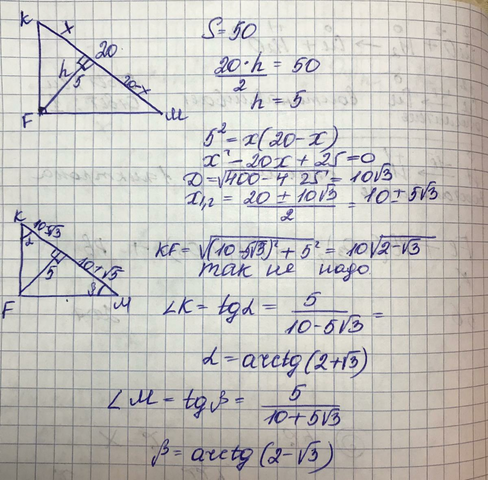 K
x
20
h
5
20-x
F
M
S = 50
20·h / 2 = 50
h = 5
5² = x(20-x)
x² - 20x + 25 = 0
D = √400 - 4·25 = 10√3
x₁,₂ = 20 ± 10√3 / 2 = 10 ± 5√3
K
10-5√3
α
5
β
F
M
KF = √(10-5√3)² + 5² = 10√2-√3
так не надо
∠K = tgα = 5 / 10-5√3 =
α = arctg(2+√3)
∠M = tgβ = 5 / 10+5√3
β = arctg(2-√3)